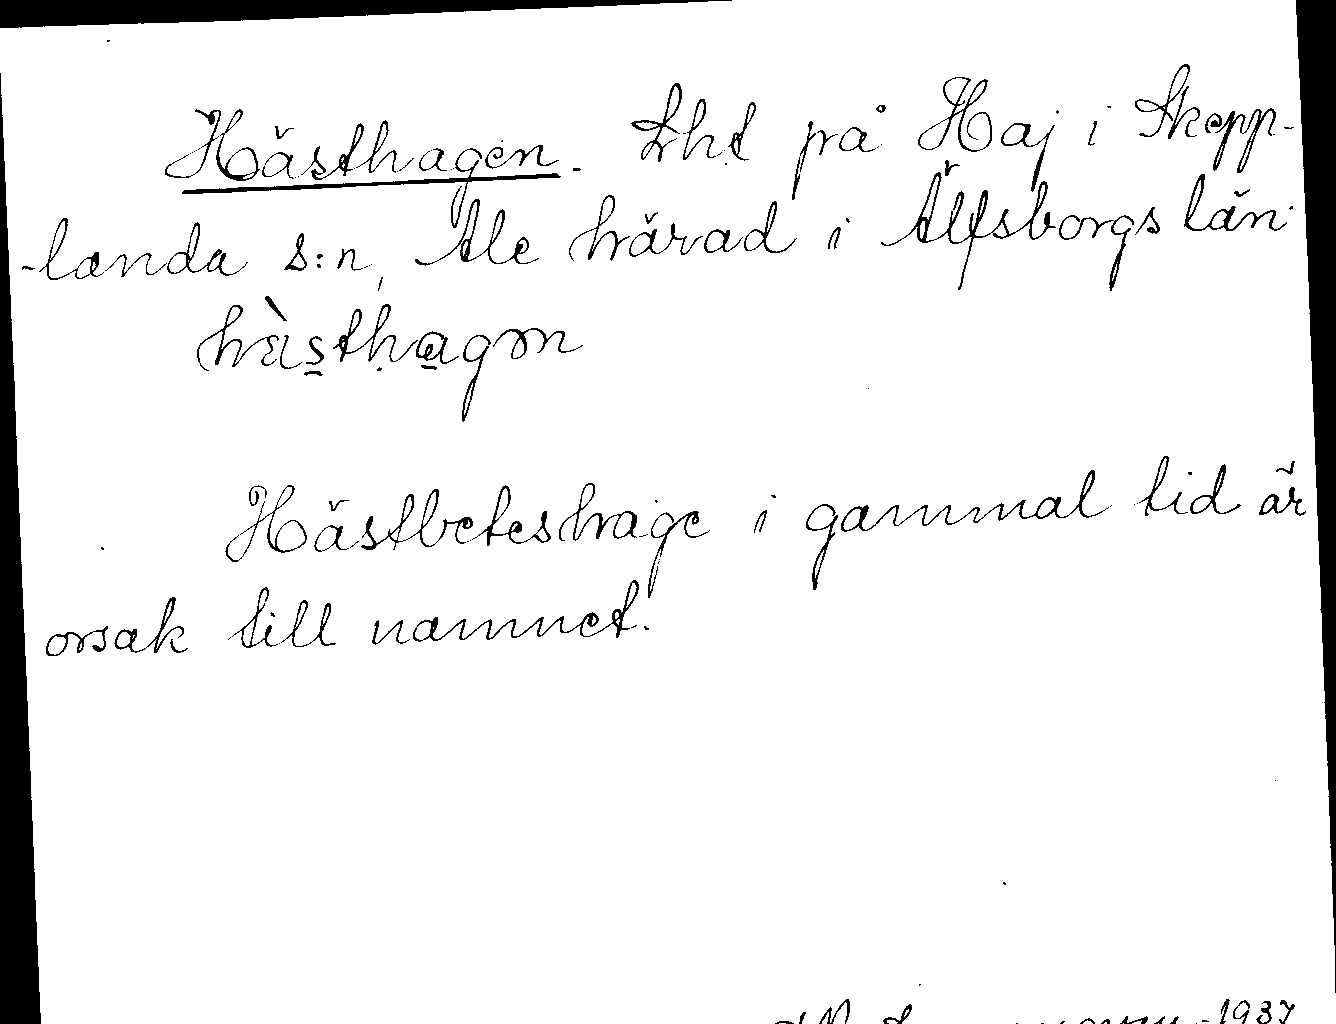 Hästhagen. Lht på Haj i Skepp-
-landa s:n, Ale härad i Älfsborgs län.
hàsthagən
Hästbeteshage i gammal tid är
orsak till namnet.
1937